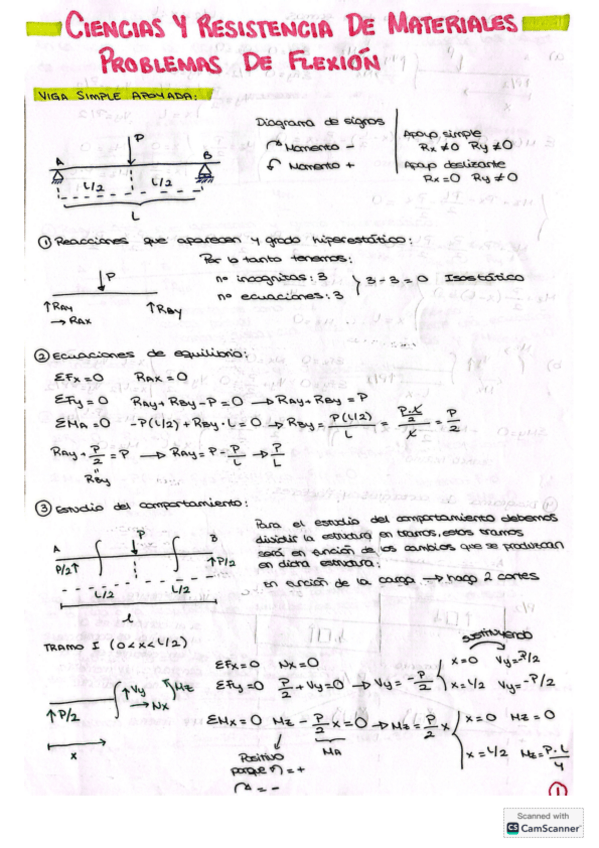 CIENCIAS Y RESISTENCIA DE MATERIALES
PROBLEMAS DE FLEXIÓN
VIGA SIMPLE APOYADA:
Diagrama de signos
Momento -
Momento +
Apoyo simple
Rx ≠ 0 Ry ≠ 0
Apoyo deslizante
Rx = 0 Ry ≠ 0
P
A B
L/2 L/2
L
① Reacciones que aparecen y grado hiperestático:
Por lo tanto tenemos:
nº incognitas: 3
nº ecuaciones: 3
3 - 3 = 0 Isostático
P
↑RAy ↑RBy
→ RAx
② Ecuaciones de equilibrio:
ΣFx = 0 RAx = 0
ΣFy = 0 RAy + RBy - P = 0 → RAy + RBy = P
ΣMA = 0 -P(L/2) + RBy · L = 0 → RBy = P(L/2)/L = (P·L/2)/L = P/2
RAy + P/2 = P → RAy = P - P/L → P/L
"
RBy
③ Estudio del comportamiento:
Para el estudio del comportamiento debemos
dividir la estructura en tramos, estos tramos
será en función de los cambios que se produzcan
en dicha estructura:
en función de la carga → hago 2 cortes
P
A B
P/2↑ ↑P/2
L/2 L/2
l
TRAMO I (0 < x < L/2)
sustituyendo
ΣFx = 0 Nx = 0
ΣFy = 0 P/2 + Vy = 0 → Vy = -P/2
x = 0 Vy = -P/2
x = L/2 Vy = -P/2
↑Vy Mz
→ Nx
↑P/2
x
ΣMx = 0 Mz - P/2 x = 0 → Mz = P/2 x
x = 0 Mz = 0
x = L/2 Mz = P·L/4
MA
Positivo
porque ↶ = +
↷ = -
1
Scanned with
CS CamScanner